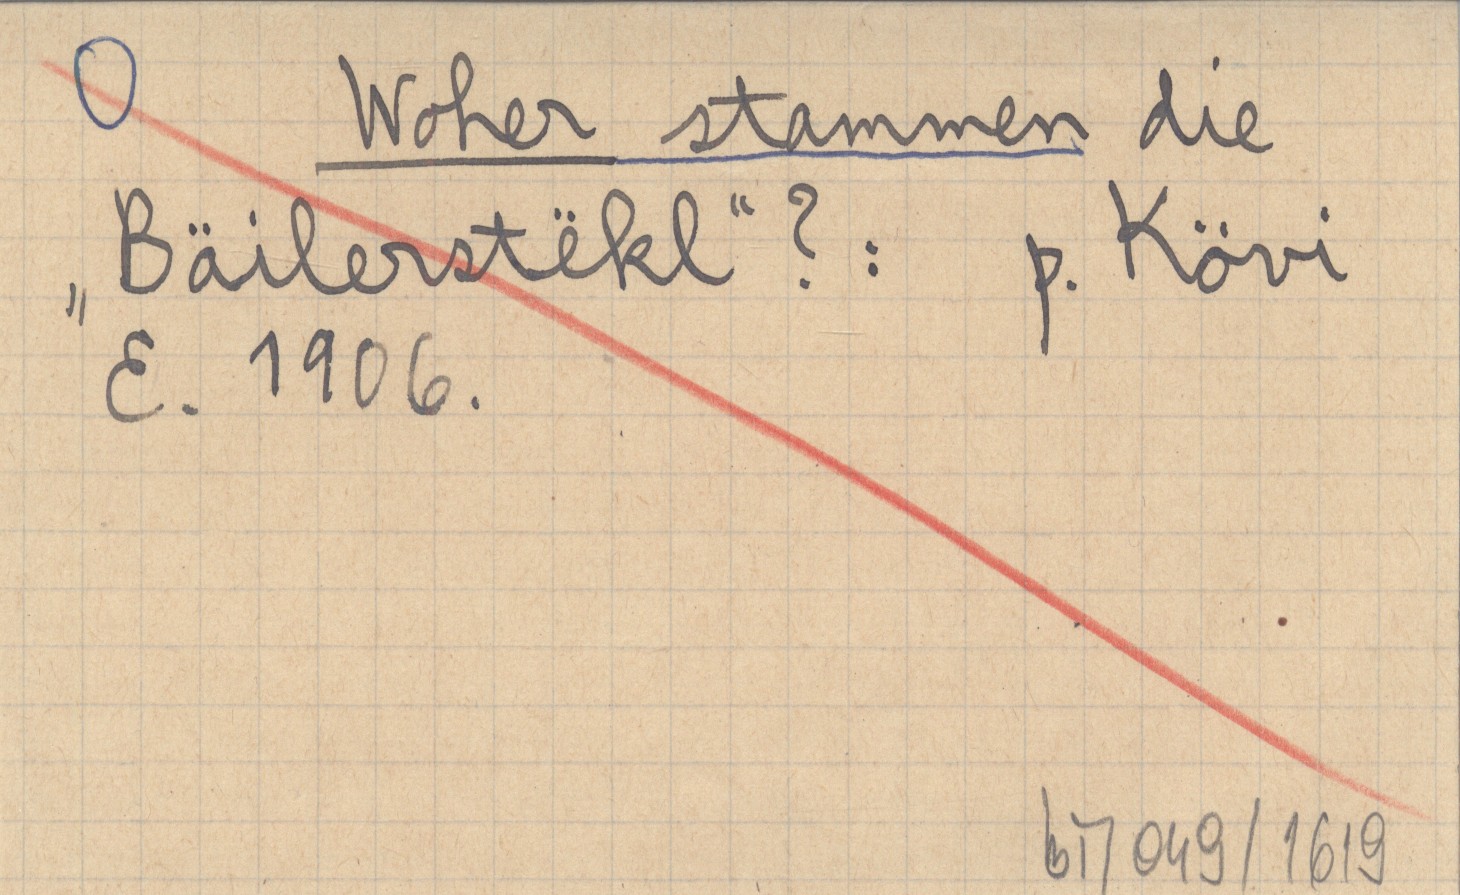 Woher stammen die
„Bäilerstëkl“?: p. Kövi
E. 1906.
bi/049/1619